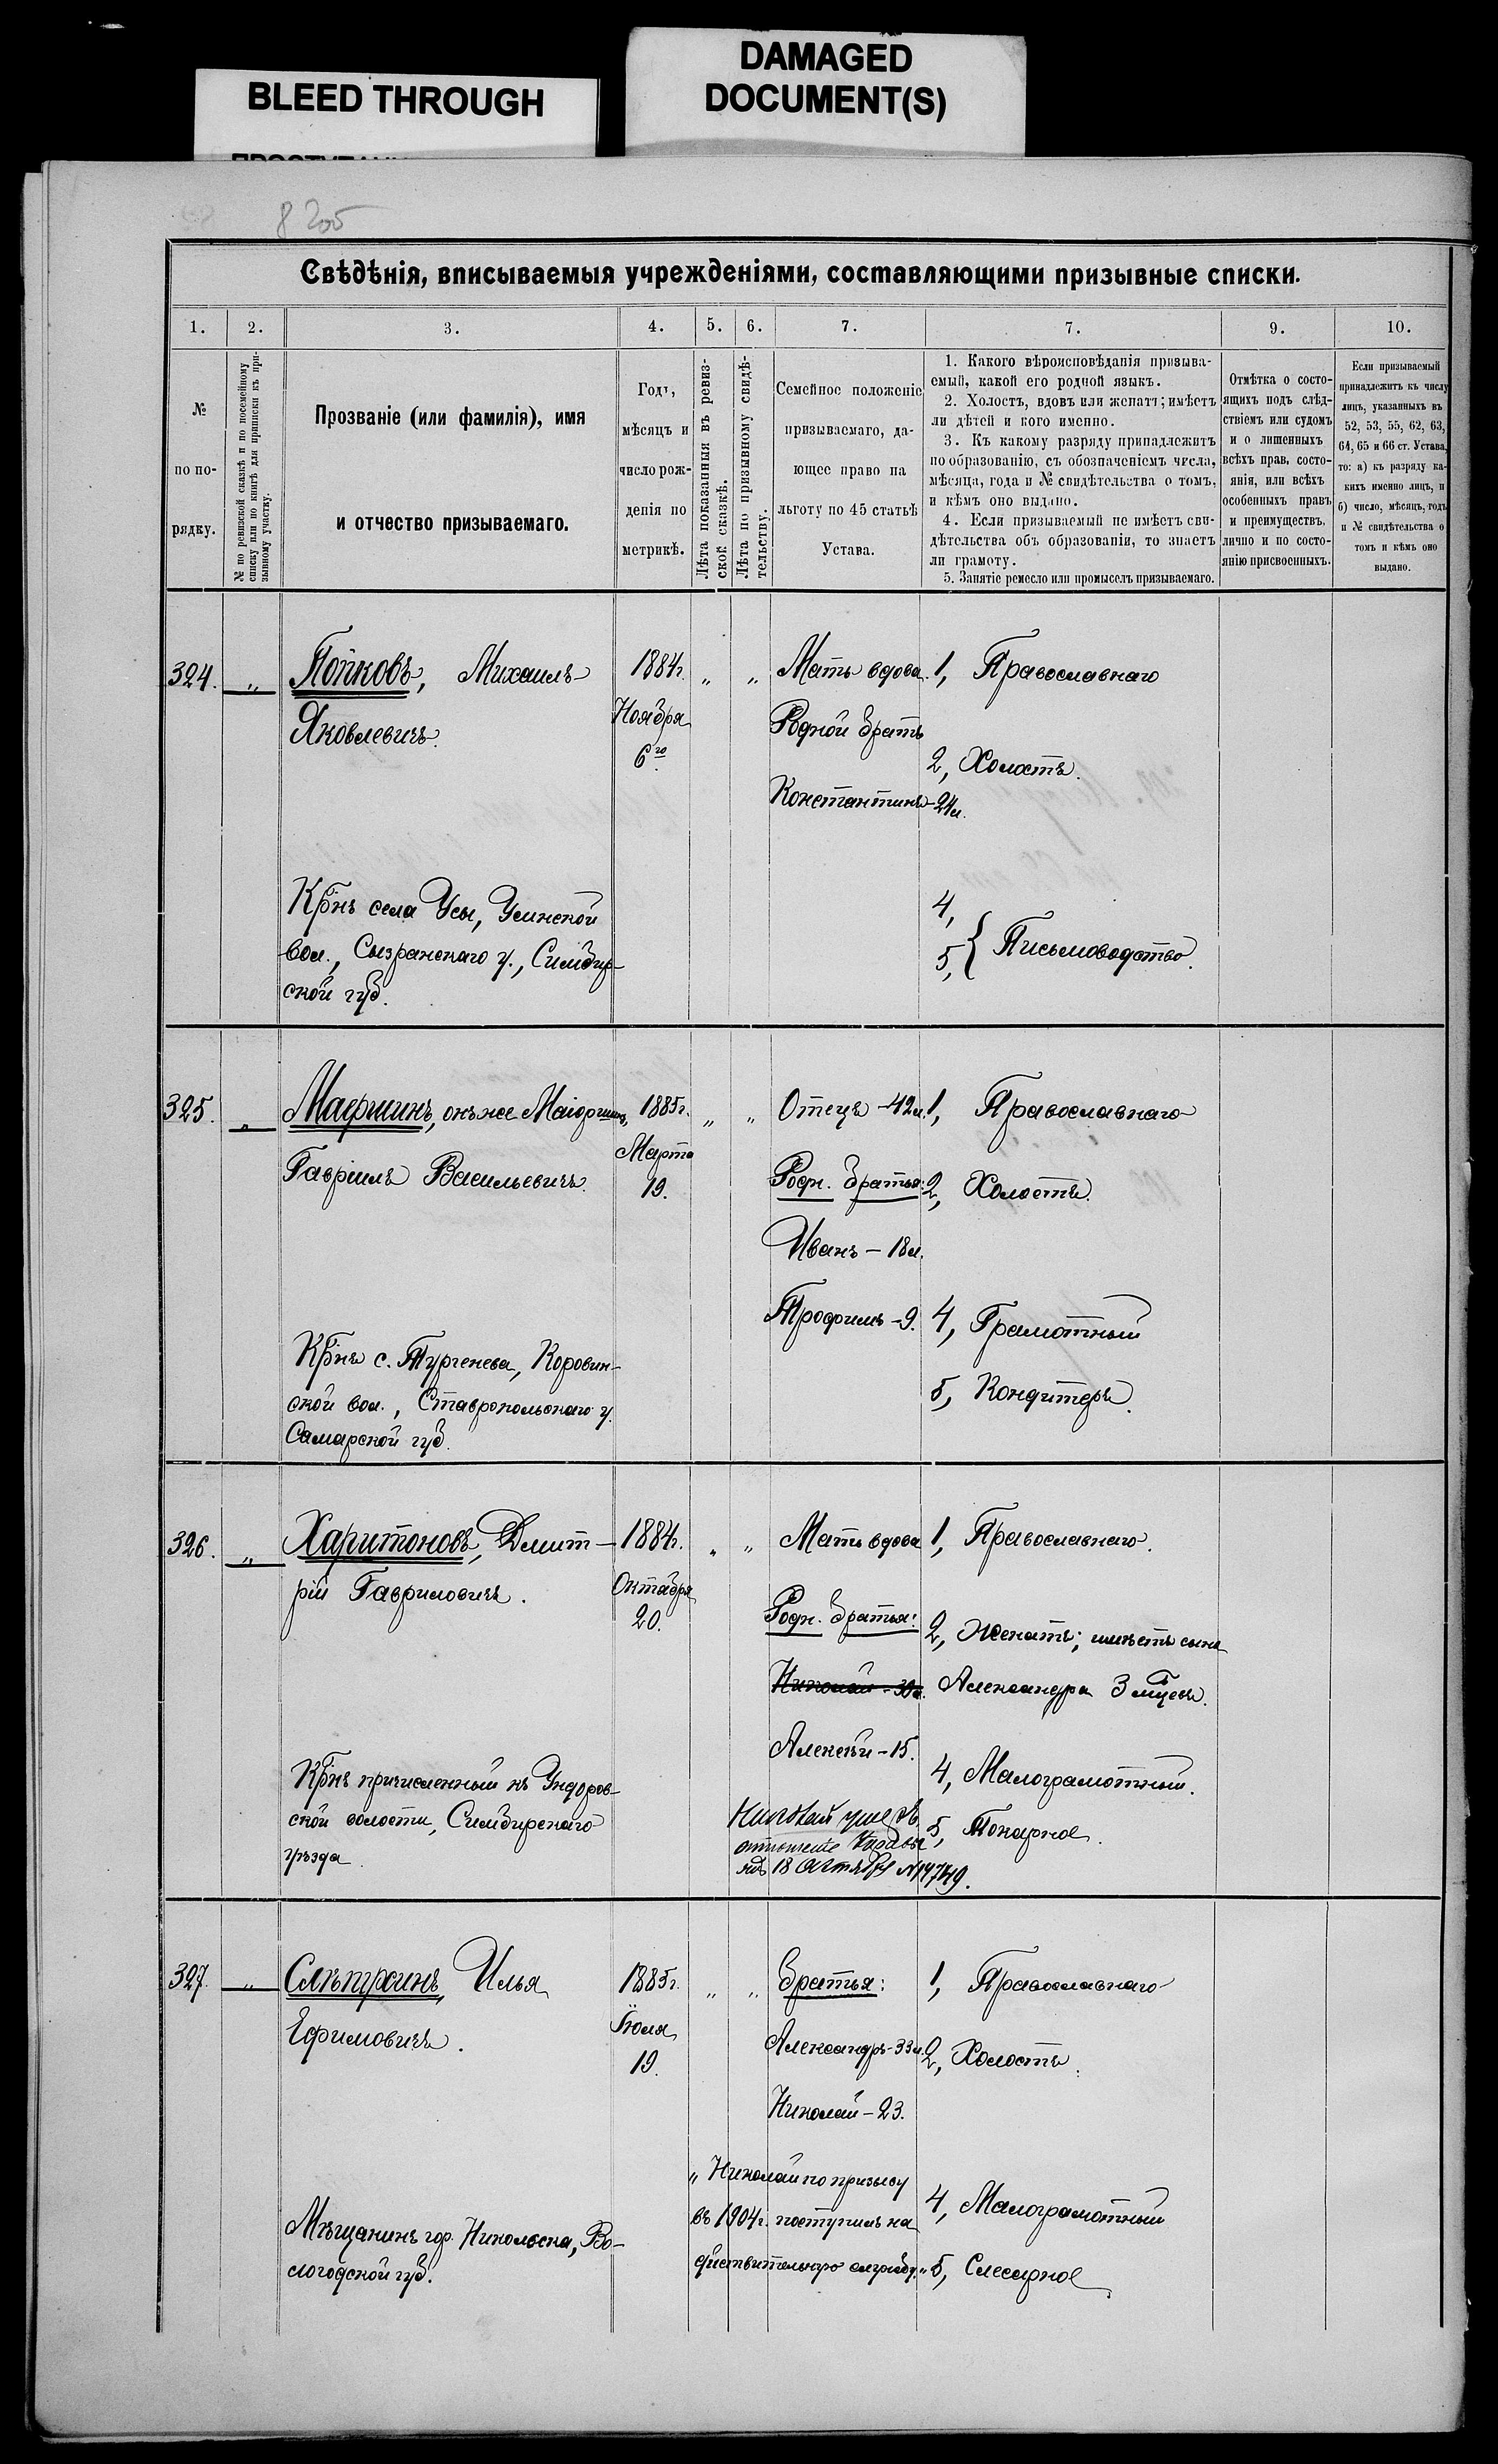 DAMAGED
DOCUMENT(S)
BLEED THROUGH
Свѣдѣнія, вписываемыя учрежденіями, составляющими призывные списки.
1. 2. 3. 4. 5. 6. 7. 7. 9. 10.
№
по по-
рядку.
№ по ревизской сказкѣ и по посемейному
списку или по книгѣ для приписки къ при-
зывному участку.
Прозваніе (или фамилія), имя
и отчество призываемаго.
Годъ,
мѣсяцъ и
число рож-
денія по
метрикѣ.
Лѣта показанныя въ ревиз-
ской сказкѣ.
Лѣта по призывному свидѣ-
тельству.
Семейное положеніе
призываемаго, да-
ющее право на
льготу по 45 статьѣ
Устава.
1. Какого вѣроисповѣданія призыва-
емый, какой его родной языкъ.
2. Холостъ, вдовъ или женатъ; имѣетъ
ли дѣтей и кого именно.
3. Къ какому разряду принадлежитъ
по образованію, съ обозначеніемъ числа,
мѣсяца, года и № свидѣтельства о томъ,
и кѣмъ оно выдано.
4. Если призываемый не имѣетъ сви-
дѣтельства объ образованіи, то знаетъ
ли грамоту.
5. Занятіе ремесло или промыселъ призываемаго.
Отмѣтка о состо-
ящихъ подъ слѣд-
ствіемъ или судомъ
и о лишенныхъ
всѣхъ прав, состо-
янія, или всѣхъ
особенныхъ правъ
и преимуществъ,
лично и по состо-
янію присвоенныхъ.
Если призываемый
принадлежитъ къ числу
лицъ, указанныхъ въ
52, 53, 55, 62, 63,
64, 65 и 66 ст. Устава,
то: а) къ разряду ка-
кихъ именно лицъ, и
б) число, мѣсяцъ, годъ
и № свидѣтельства о
томъ и кѣмъ оно
выдано.
324. „ Попковъ, Михаилъ
Яковлевичъ.
Кр͠нъ села Усы, Усинской
вол., Сызранскаго у., Симбир-
ской губ.
1884г.
Ноября
6го
„ „
Мать вдова.
Родной братъ
Константинъ-24л.
1, Православнаго
2, Холостъ.
4,
5, { Письмоводство.
325. „ Маершинъ, онъ же Маіоршинъ,
Гавріилъ Васильевичъ.
Кр͠нъ с. Тургенева, Коровин-
ской вол., Ставропольскаго у.
Самарской губ.
1885г.
Марта
19.
„ „
Отецъ-42л.
Родн. братья:
Иванъ-18л.
Трофимъ-9.
1, Православнаго
2, Холостъ.
4, Грамотный
5, Кондитеръ.
326. „ Харитоновъ, Дмит-
рій Гавриловичъ.
Кр͠нъ причисленный къ Ундоров-
ской волости, Симбирскаго
уѣзда.
1884г.
Октября
20.
„ „
Мать вдова
Родн. братья:
Николай-30л.
Алексѣй-15.
Николай
18 Октября №14749.
1, Православнаго.
2, Женатъ; имѣетъ сына
Александра 3 мѣсяц.
4, Малограмотный.
5, Токарное.
327. „ Слѣпухинъ, Илья
Ефимовичъ.
Мѣщанинъ гор. Никольска, Во-
логодской губ.
1885г.
Іюля
19.
„ „
Братья:
Александръ-33л.
Николай-23.
„Николай по призыву
въ 1904г. поступилъ на
дѣйствительную службу.“
1, Православнаго
2, Холостъ.
4, Малограмотный
5, Слесарное